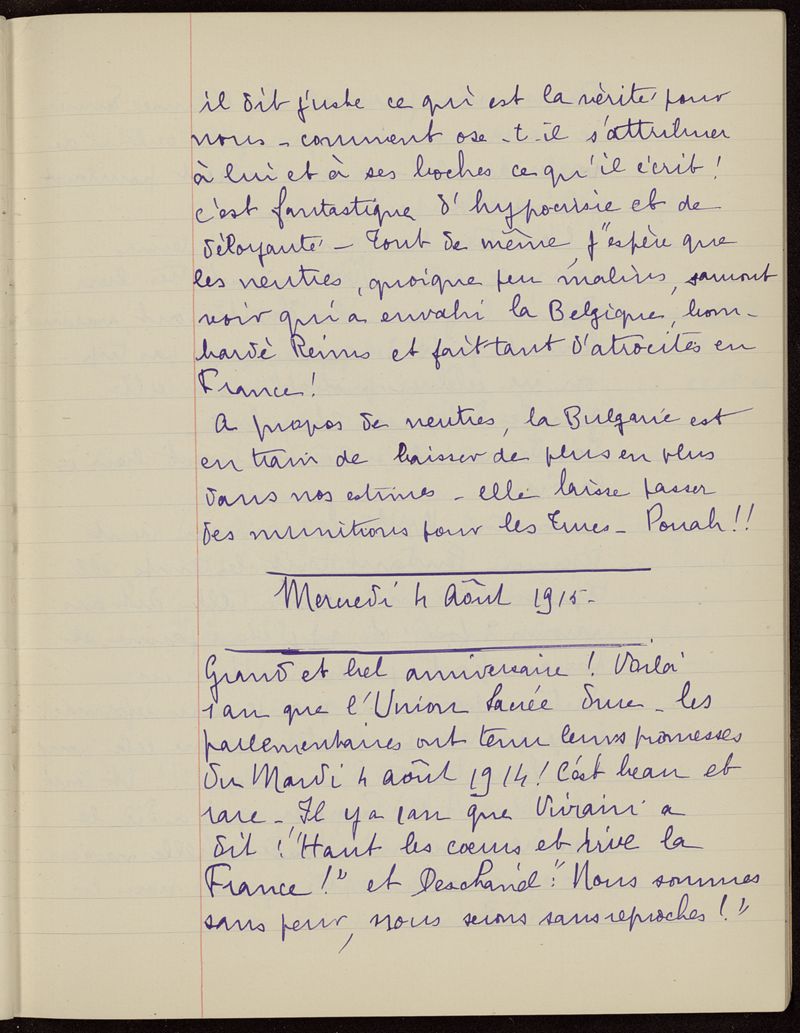 il dit juste ce qui est la vérité pour
nous - comment ose-t-il s'attribuer
à lui et à ses boches ce qu'il écrit !
c'est fantastique d'hypocrisie et de
déloyauté - Tout de même, j'espère que
les neutres, quoique peu malins, sauront
voir qui a envahi la Belgique, bom-
bardé Reims et fait tant d'atrocités en
France !
A propos de neutres, la Bulgarie est
en train de baisser de plus en plus
dans nos estimes - elle laisse passer
des munitions pour les Turcs - Pouah !!
Mercredi 4 Août 1915 -
Grand et bel anniversaire ! Voilà
1 an que l'Union Sacrée dure - les
parlementaires ont tenu leurs promesses
du Mardi 4 août 1914 ! C'est beau et
rare - Il y a 1 an que Viviani a
dit : "Haut les cœurs et vive la
France !" et Deschanel : "Nous sommes
sans peur, nous serons sans reproches !"